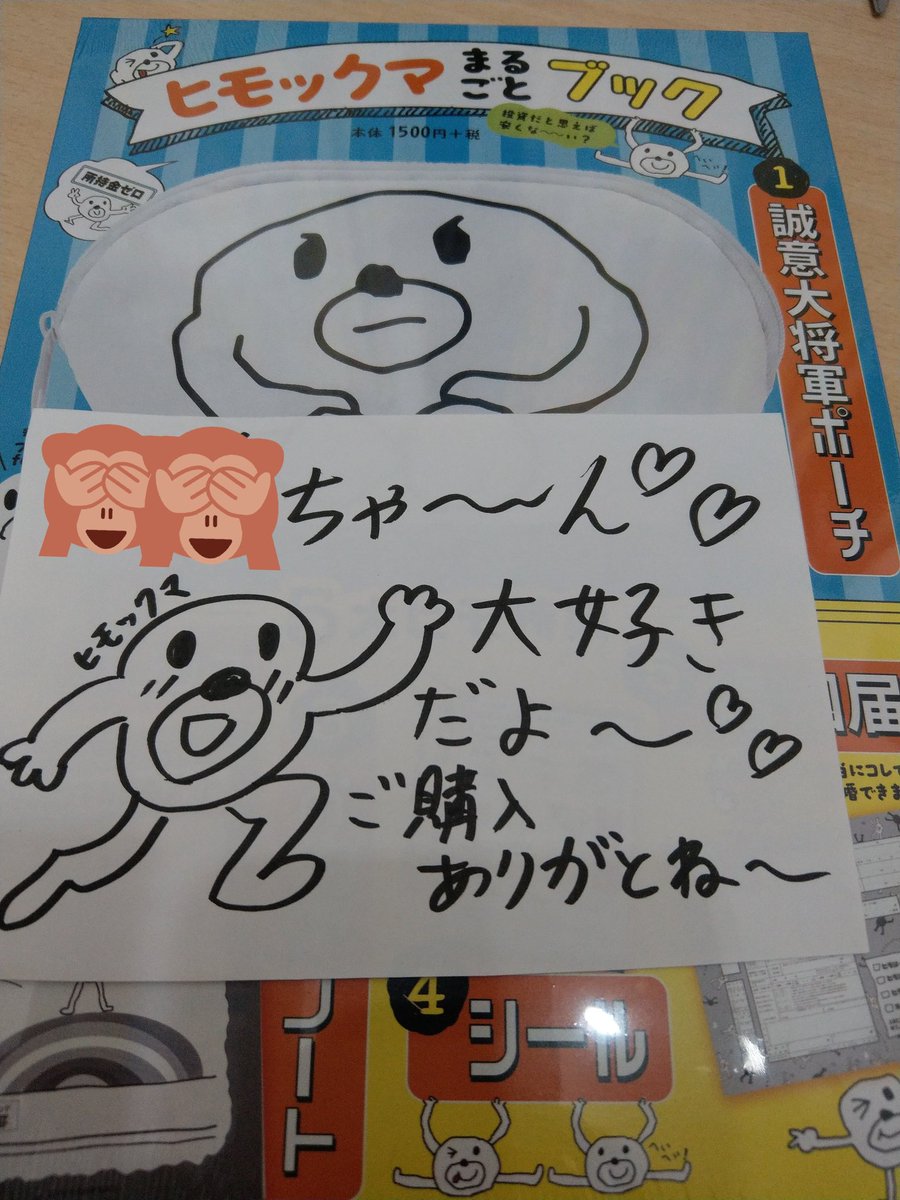 ヒモックマ まるごと ブック
本体 1500円+税
投資だと思えば
安くな〜〜い?
へいへい!
所持金ゼロ
1
誠意大将軍ポーチ
ちゃ〜〜ん♡♡
ヒモックマ
大好き
だよ〜♡♡
ご購入
ありがとね〜
届
当にコレで
婚できま
ノート
4
シール